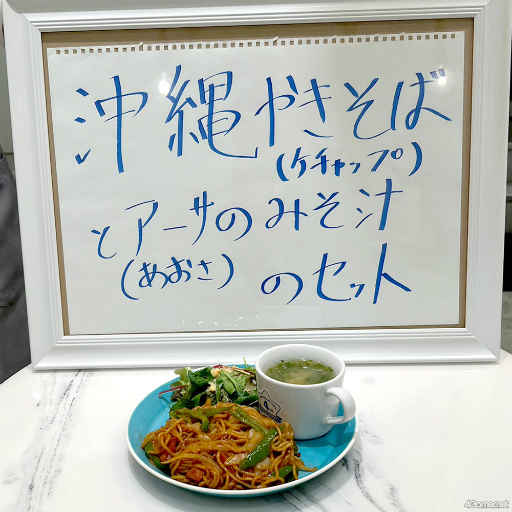 沖縄やきそば
(ケチャップ)
とアーサのみそ汁
(あおさ)
のセット
4Gamer.net